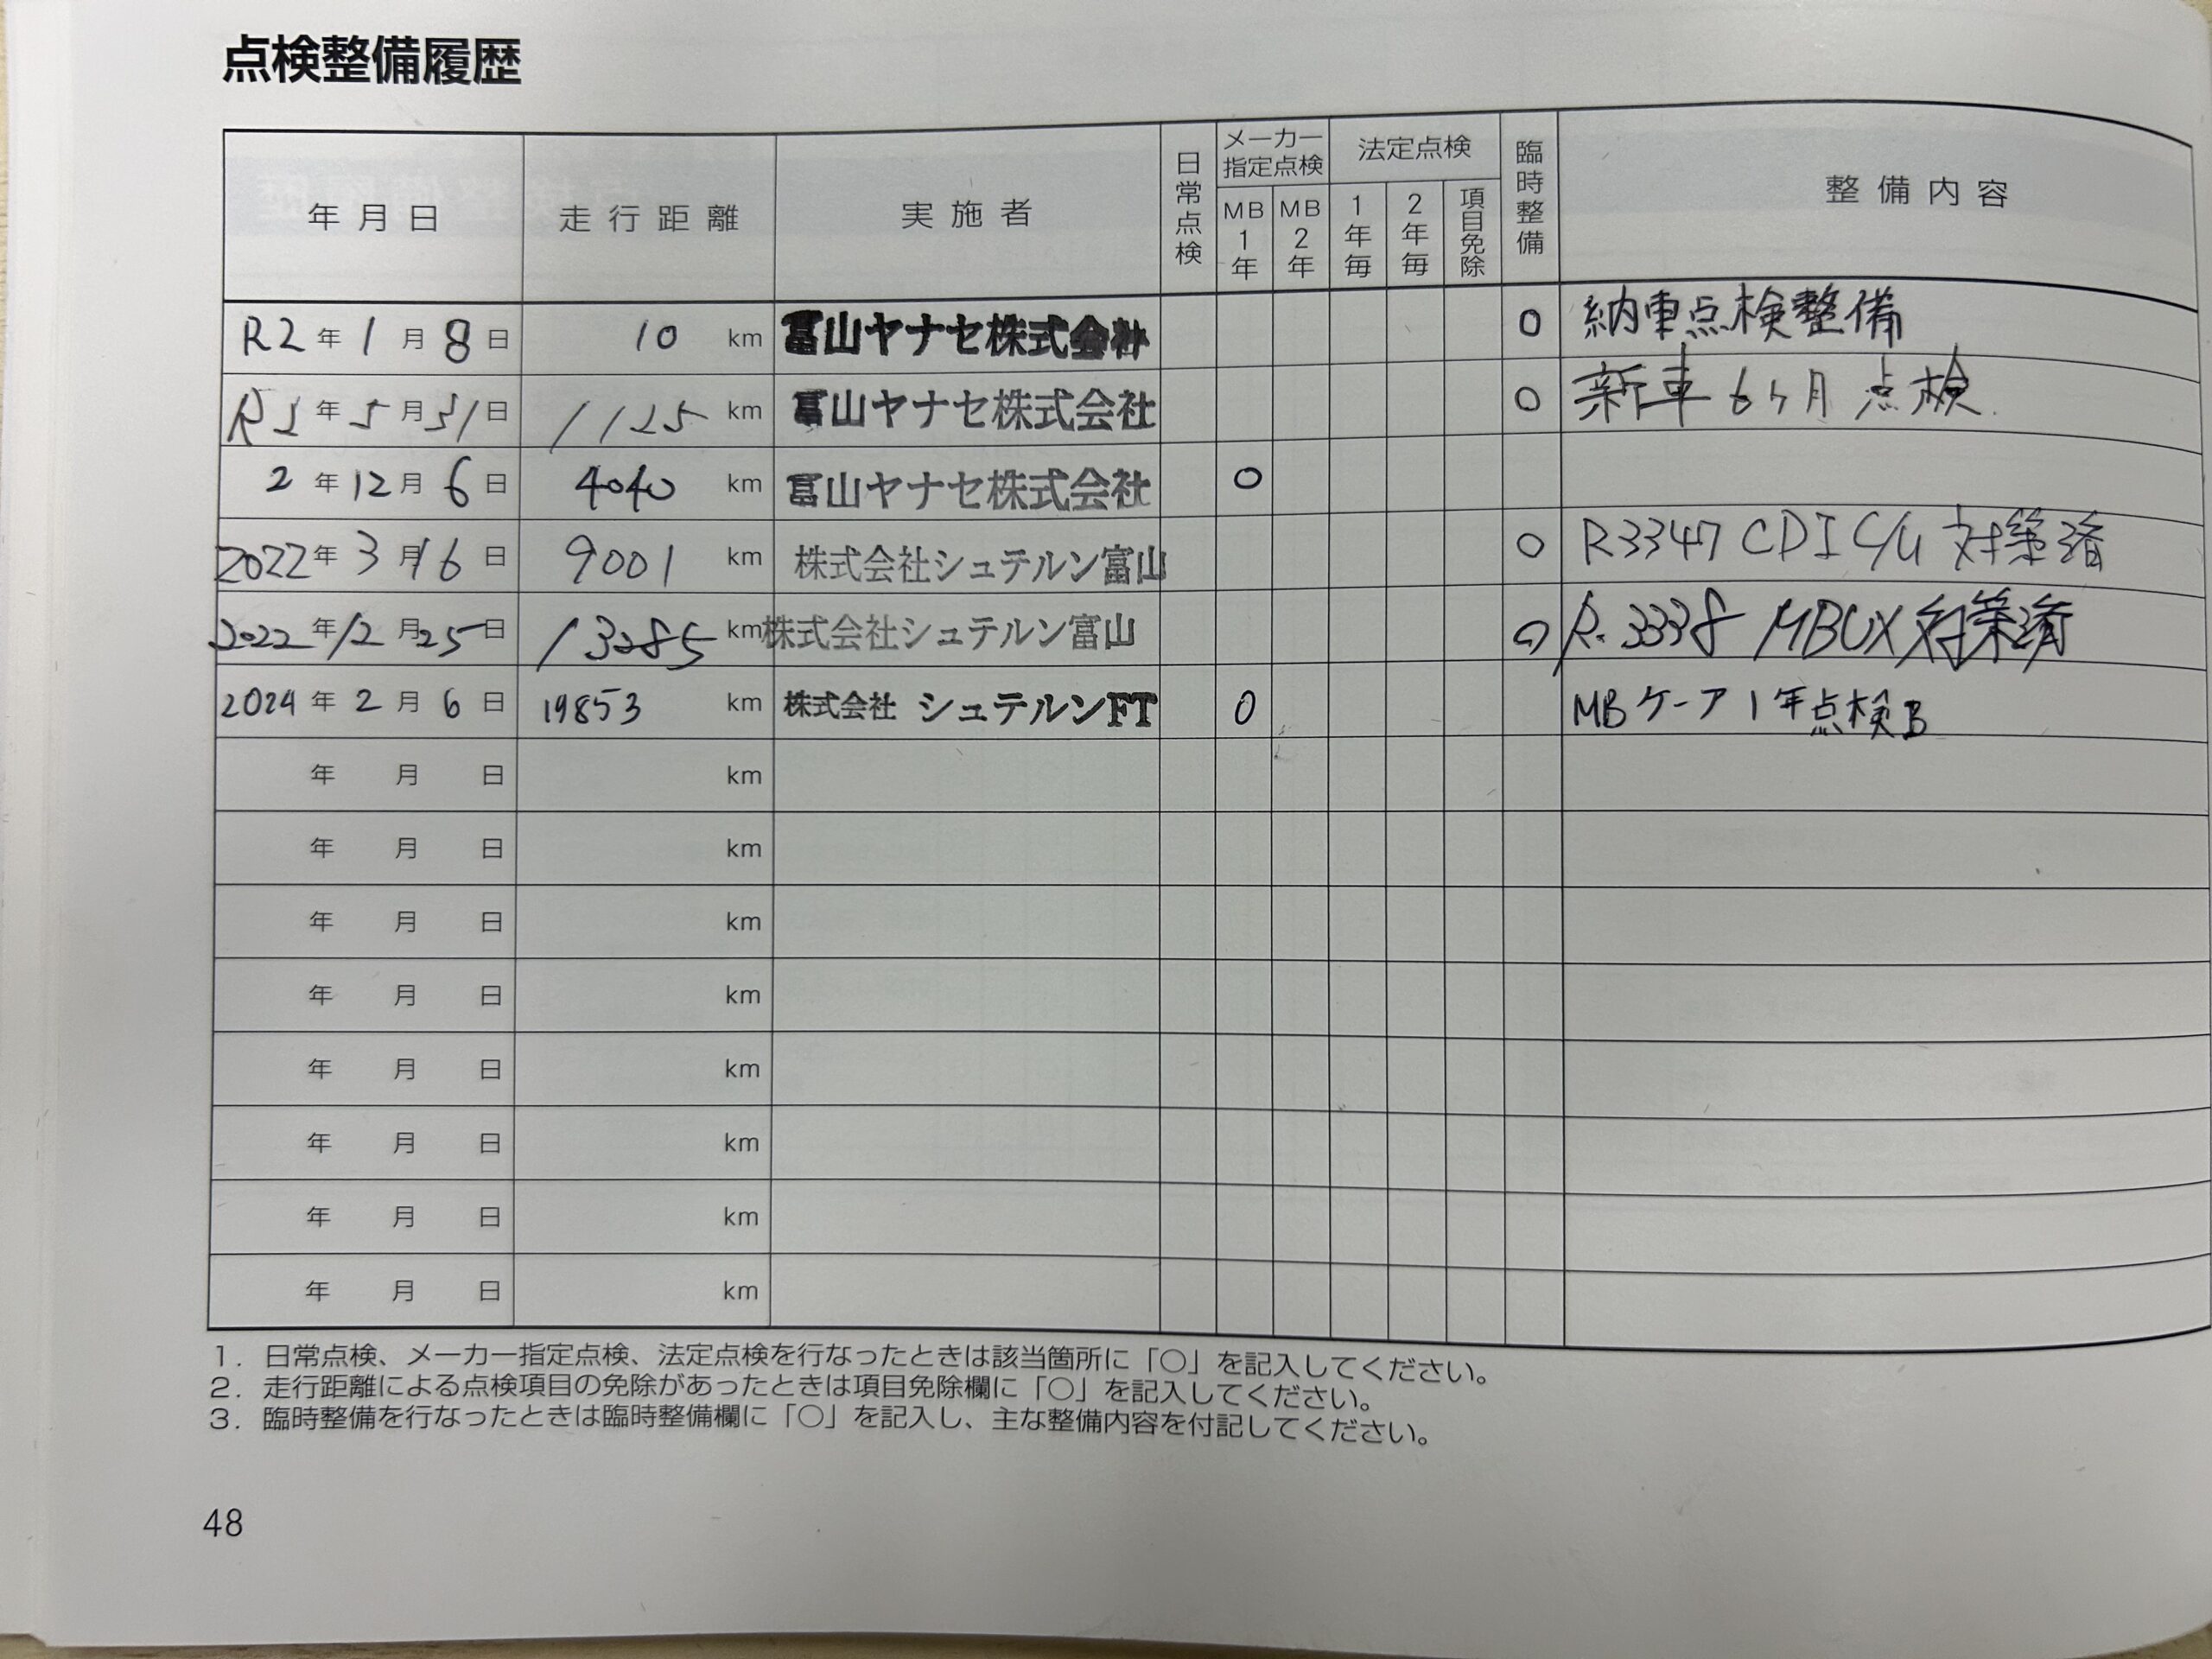 点検整備履歴
年月日 走行距離 実施者 日常点検 メーカー指定点検 MB1年 MB2年 法定点検 1年毎 2年毎 項目免除 臨時整備 整備内容
R2年1月8日 10km 富山ヤナセ株式会社 ○ 納車点検整備
R2年5月31日 1125km 富山ヤナセ株式会社 ○ 新車6ヶ月点検
2年12月6日 4040km 富山ヤナセ株式会社 ○
2022年3月16日 9001km 株式会社シュテルン富山 ○ R3347 CDI C/U 対策済
2022年12月25日 13285km 株式会社シュテルン富山 ○ R.3338 MBUX対策済
2024年2月6日 19853km 株式会社 シュテルンFT ○ MBケーア1年点検B
年 月 日 km
年 月 日 km
年 月 日 km
年 月 日 km
年 月 日 km
年 月 日 km
年 月 日 km
年 月 日 km
1. 日常点検、メーカー指定点検、法定点検を行なったときは該当箇所に「○」を記入してください。
2. 走行距離による点検項目の免除があったときは項目免除欄に「○」を記入してください。
3. 臨時整備を行なったときは臨時整備欄に「○」を記入し、主な整備内容を付記してください。
48